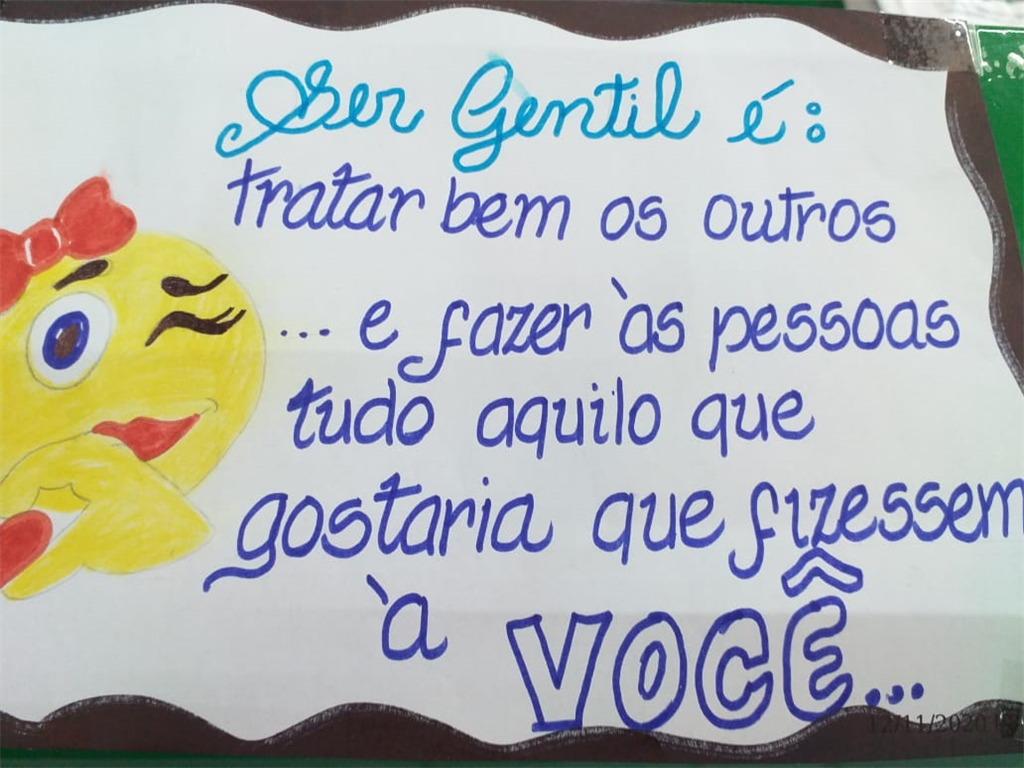 Ser Gentil é:
tratar bem os outros
... e fazer às pessoas
tudo aquilo que
gostaria que fizessem
à VOCÊ...
12/11/2020